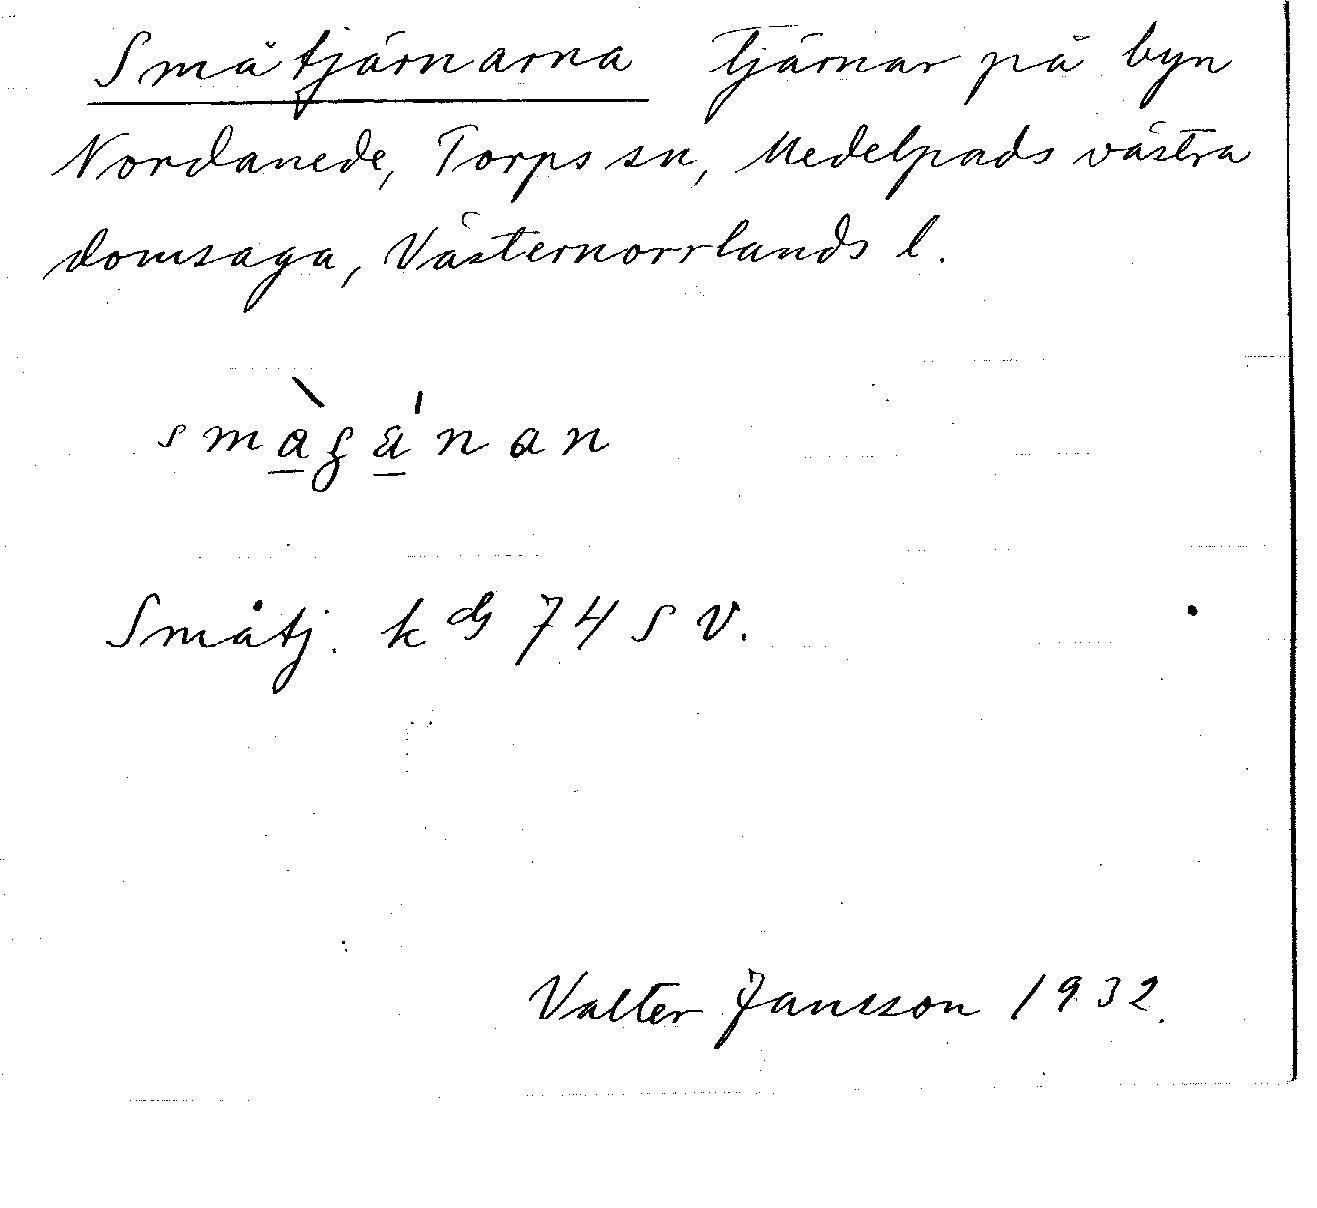 Småtjärnarna Tjärnar på byn
Nordanede, Torps sn, Medelpads västra
domsaga, Västernorrlands l.
Småtj. k dg 74 SV.
Valter Jansson 1932.